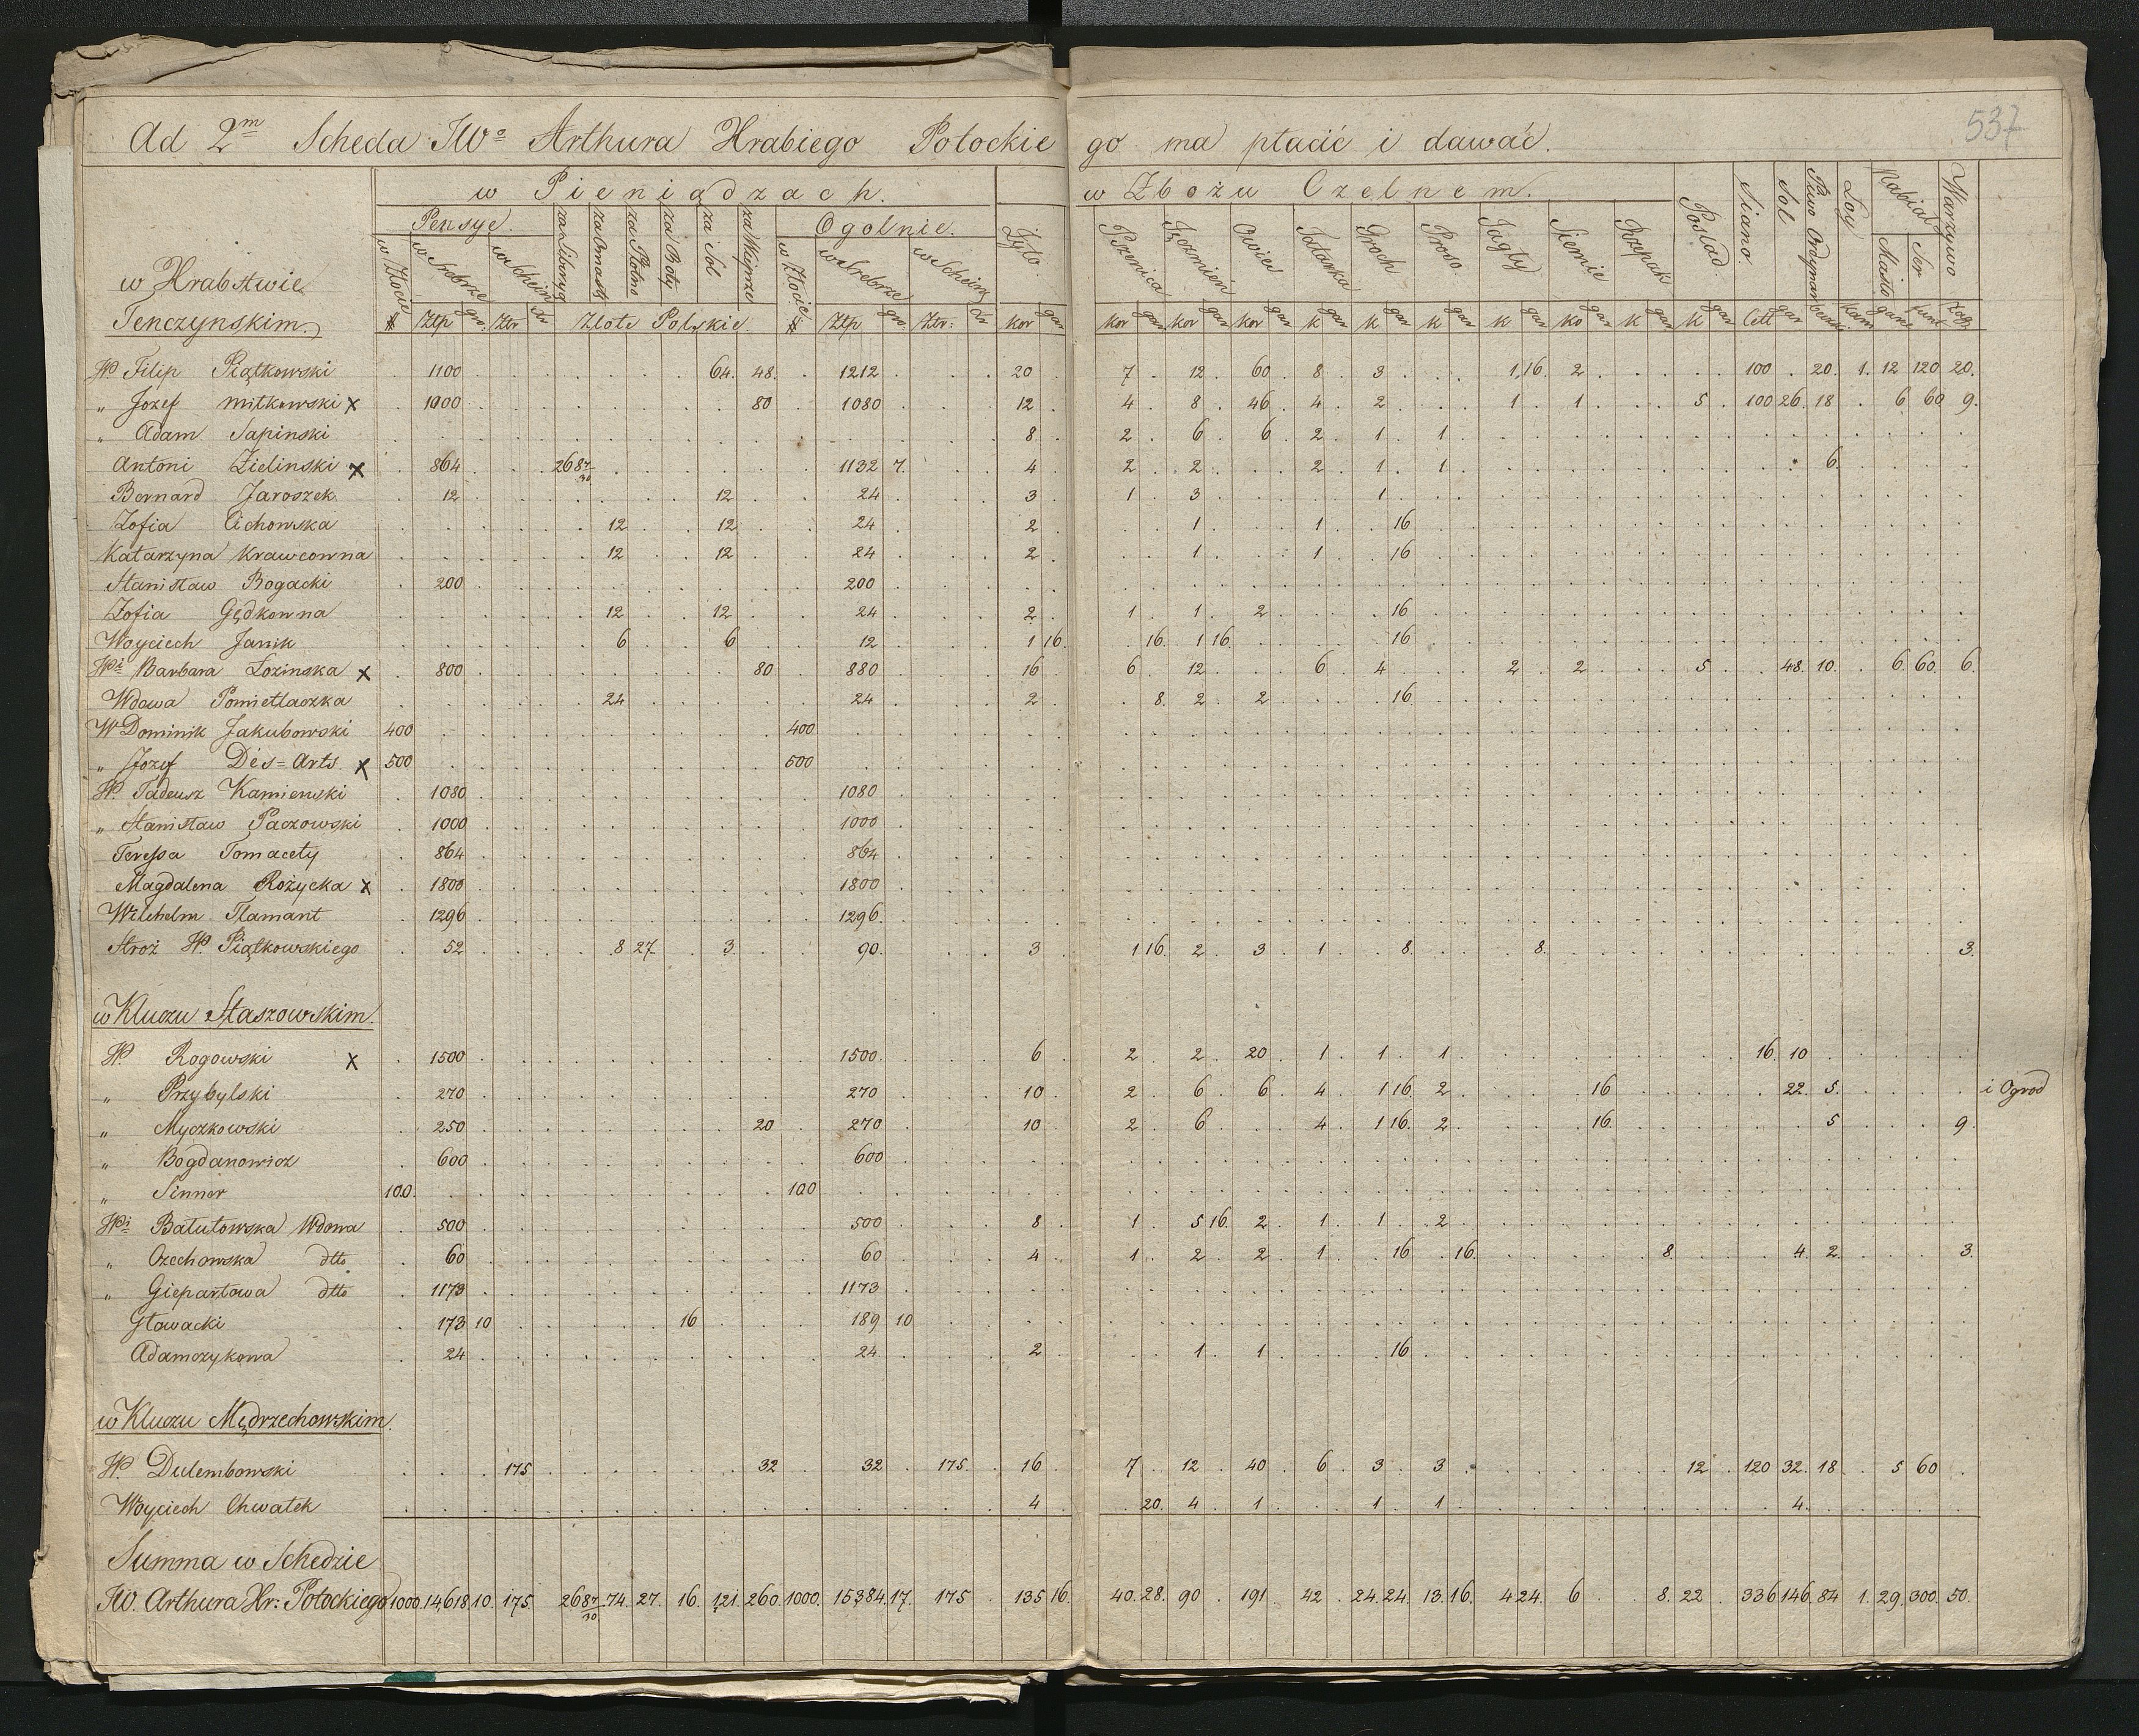 537
Ad 2m Scheda JWo Arthura Hrabiego Potockiego ma płacić i dawać.
w Pieniądzach. w Zbożu Czelnem.
Pensye. za Liberyą za Omasty za Płótno za Boty za Sol za Wieprze Ogolnie. Żyto. Pszenica Jęczmień Owies Tatarka Groch Proso Jagły Siemie Rzepak Poslad Siano. Sol Piwo Ordynar Loy Nabiał Warzywo
w Złocie w Srebrze w Schein w Złocie w Srebrze w Schein Masło Ser
w Hrabstwie
Tenczynskim. # Złp gro: Złr: xr Złote Polskie. # Złp gro: Złr: xr kor gar kor gar kor gar kor gar k gar k gar k gar k gar ko gar k gar k gar Cett gar beczki kam garc funt Zag:
W. Filip Piątkowski 1100 64. 48. 1212 20 7 12 60 8 3 1,16. 2 100 20. 1. 12 120 20.
" Jozef Mitkowski x 1000 80 1080 12 4 8 46 4 2 1 1 5 100 26. 18 6 60 9.
" Adam Sapinski 8 2 6 6 2 1 1
Antoni Zielinski x 864 268 7/30 1132 7. 4 2 2 2 1 1 6.
Bernard Jaroszek 12 12 24 3 1 3 1
Zofia Cichowska 12 12 24 2 1 1 16
Katarzyna Krawcowna 12 12 24 2 1 1 16
Stanisław Bogacki 200 200
Zofia Gędkowna 12 12 24 2 1 1 2 16
Woyciech Janik 6 6 12 1 16. 16. 1 16 16
Wi Barbara Lozinska x 800 80 880 16 6 12 6 4 2 2 5 48. 10. 6 60. 6.
Wdowa Pomietlaczka 24 24 2 8. 2 2 16
W Dominik Jakubowski 400 400
" Jozef Des=Arts. x 500 500
W. Tadeusz Kamienski 1080 1080
" Stanisław Paczowski 1000 1000
Teressa Tomacety 864 864
Magdalena Rożycka x 1800 1800
Wilchelm Flamant 1296 1296.
Stroż W. Piątkowskiego 52 8 27 3 90. 3 1 16. 2 3 1 8. 8. 3.
w Kluczu Staszowskim.
W. Rogowski x 1500 1500. 6 2 2 20 1 1 1 16. 10
" Przybylski 270 270 10 2 6 6 4 1 16. 2 16 22. 5. i Ogrod
" Myczkowski 250 20 270 10 2 6 4 1 16. 2 16. 5 9.
" Bogdanowicz 600 600
" Sinner 100. 100
Wi Batutowska Wdowa 500 500 8 1 5 16. 2 1 1 2
" Ozechowska dtto 60 60 4 1 2 2 1 16 16. 8. 4. 2. 3.
" Giepartowa dtto 1173 1173
Głowacki 173 10 16 189 10
Adamczykowa 24 24 2 1 1 16
w Kluczu Mędrzechowskim.
W. Dulembowski 175 32 32 175 16 7 12 40 6 3 3 12 120 32. 18 5 60
Woyciech Chwatek 4 20. 4 1 1 1 4.
Summa w Schedzie
JW. Arthura Hr: Potockiego 1000. 14618 10. 175. 268 7/30 74. 27. 16. 121. 260. 1000. 15384. 17. 175 135 16. 40. 28. 90 191 42 24. 24. 13. 16. 4 24. 6 8. 22 336 146. 84 1. 29. 300. 50.